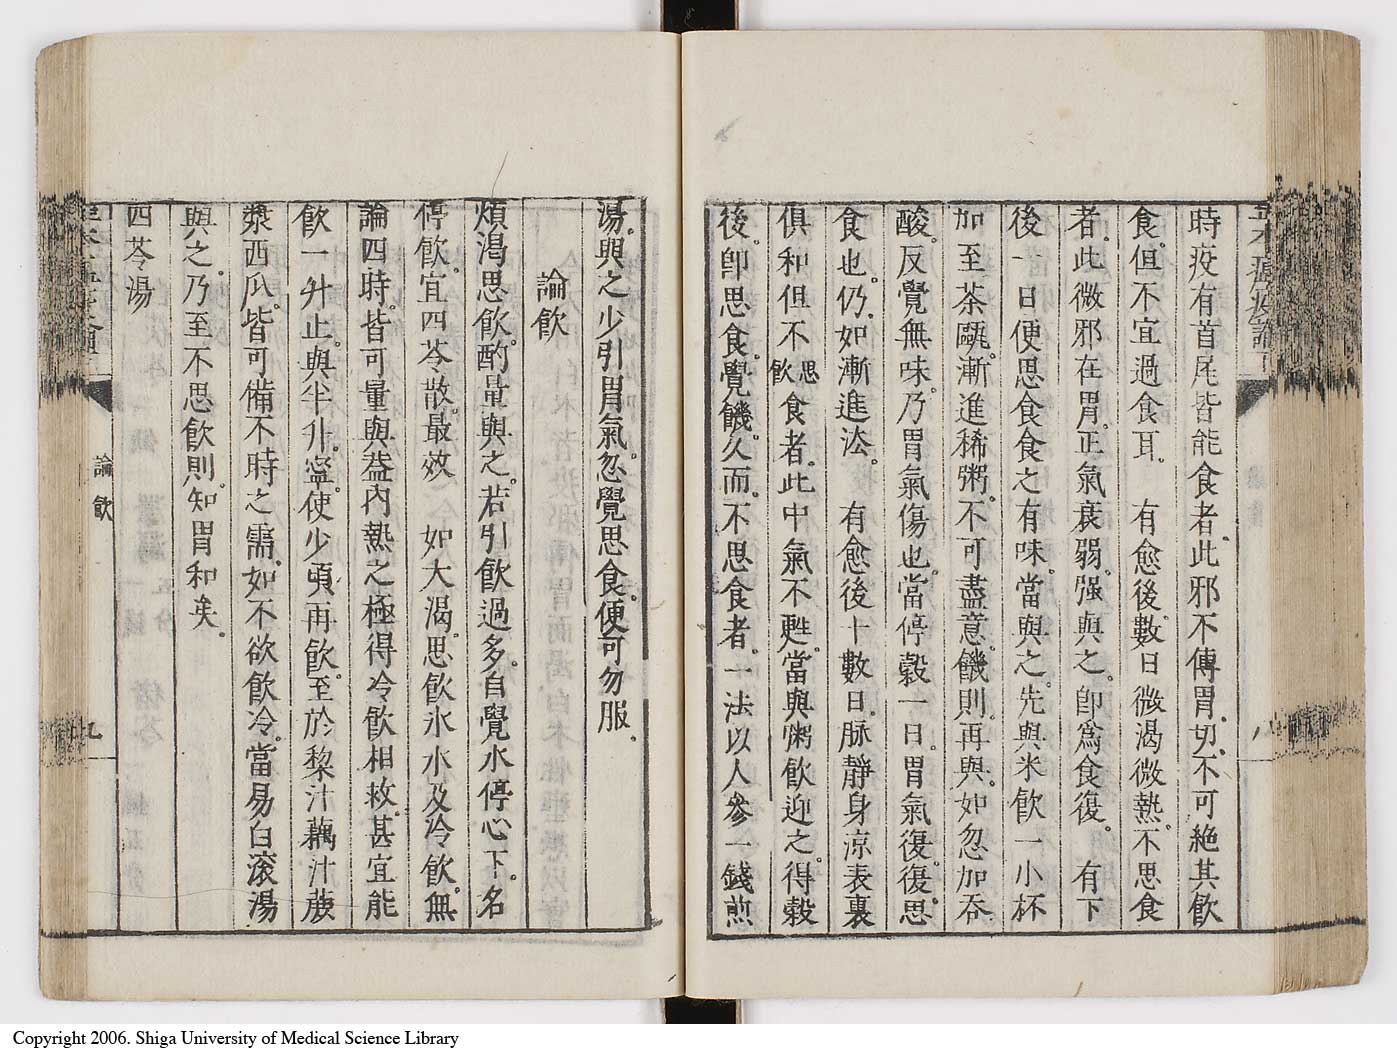 時疫有首尾皆能食者。此邪不傳胃。切。不可絶其飲
食。但不宜過食耳。 有愈後。數日微渴微熱。不思食
者。此微邪在胃。正氣衰弱。强與之。卽爲食復。 有下
後一日便思食食之有味。當與之。先與米飲一小杯
加至茶甌。漸進稀粥。不可盡意。饑則。再與。如忽加吞
酸。反覺無味。乃胃氣傷也。當停穀一日。胃氣復。復思
食也。仍。如漸進法。 有愈後十數日。脉靜身凉表裏
俱和但不思飲食者。此中氣不甦。當與粥飲迎之。得穀
後。卽思食。覺饑。久而。不思食者。一法以人參一錢煎
湯。與之少引胃氣。忽覺思食。便可勿服。
論飲
煩渴思飲。酌量與之。若引飲過多。自覺水停心下。名
停飲。宜四苓散。最效 如大渴。思飲氷水及冷飲。無
論四時。皆可量與葢內熱之極得冷飲相救。甚宜能
飲一升止。與半升。寧。使少頃再飲。至於棃汁藕汁蔗
漿西瓜。皆可備不時之需。如不欲飲冷。當易白滾湯
與之。乃至不思飲則。知胃和矣。
四苓湯
論飲
九
八